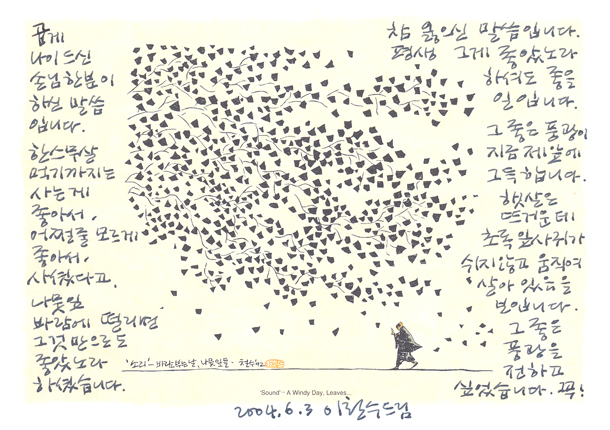 곱게
나이 드신
손님 한분이
하신 말씀
입니다.
한스무살
먹기까지는
사는게
좋아서,
어쩔줄 모르게
좋아서,
사셨다고.
나뭇잎
바람에 떨리면
그것만으로도
좋았노라
하셨습니다.
참 옳으신 말씀입니다.
평생 그게 좋았노라
하셔도 좋을
일입니다.
그 좋은 풍광이
지금 제앞에
그득합니다.
햇살은
뜨거운데
초록 잎사귀가
쉬지않고 움직여
살아 있음을
보입니다.
그 좋은
풍광을
전하고
싶었습니다. 꾸벅!
'소리'- 바람부는날, 나뭇잎들 - 철수
'Sound' - A Windy Day, Leaves...
2004. 6. 3 이철수드림